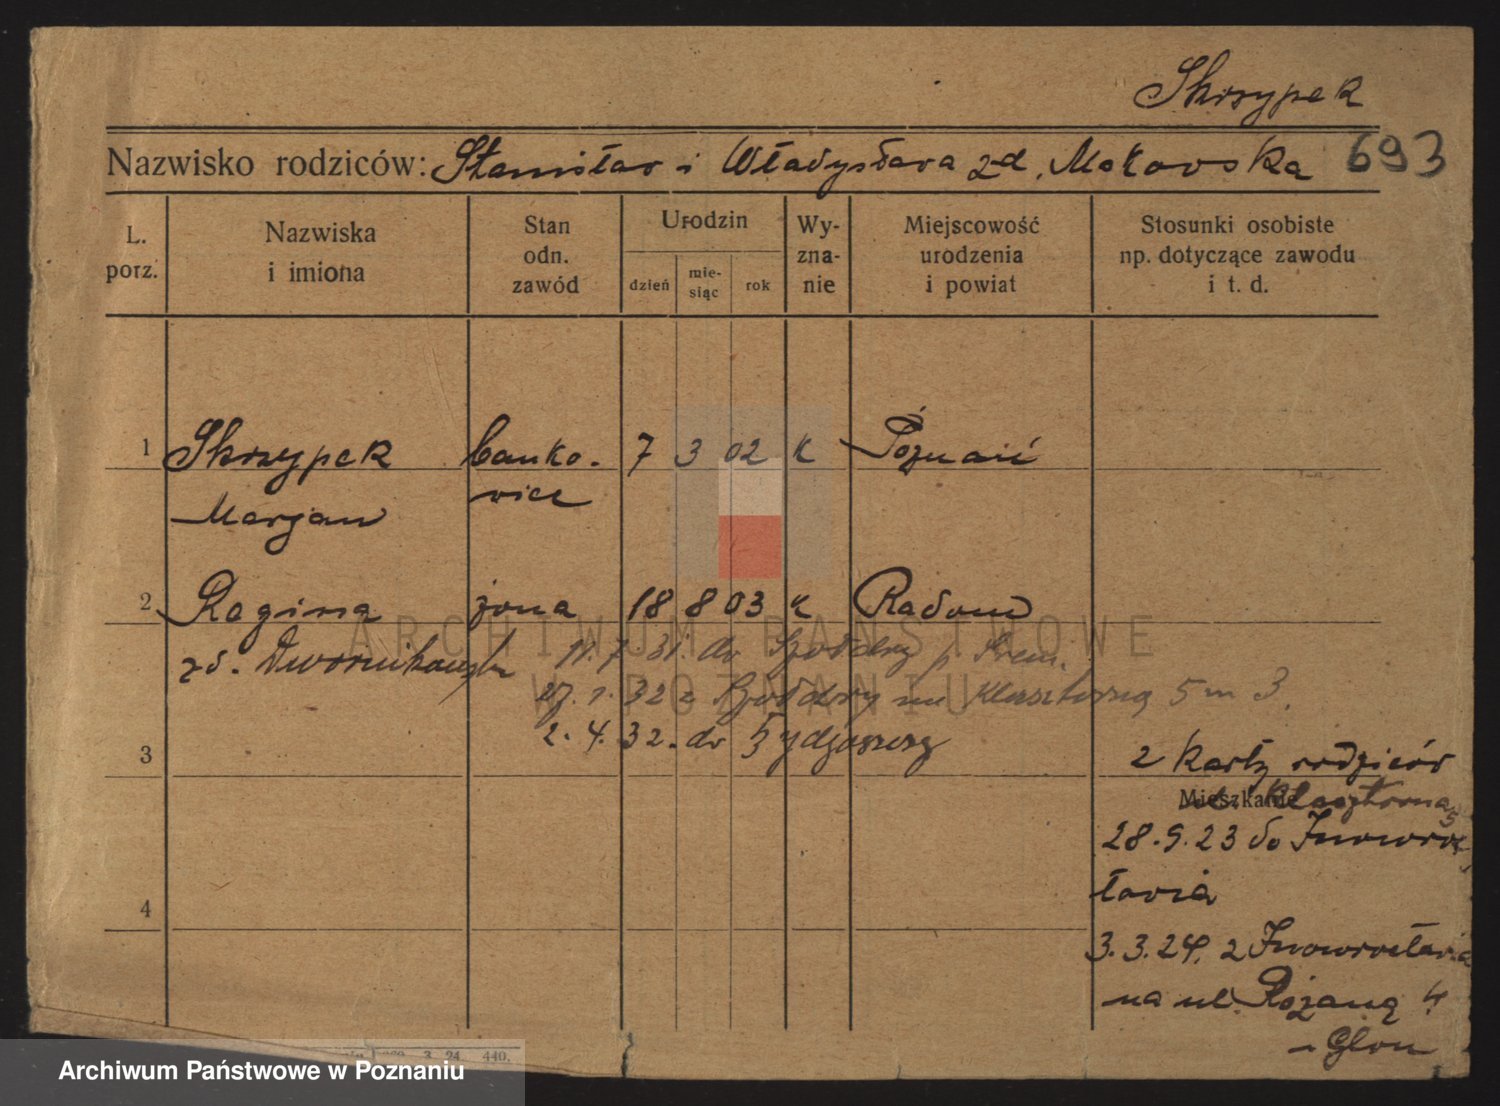 Skrzypek
Nazwisko rodziców: Stanisław i Władysława zd. Makowska 693
L. porz.
Nazwiska i imiona
Stan odn. zawód
Urodzin
dzień
mie-siąc
rok
Wy-zna-nie
Miejscowość urodzenia i powiat
Stosunki osobiste np. dotyczące zawodu i t. d.
1 Skrzypek banko- 7 3 02 k Poznań
Marjan wiec
2 Regina żona 18 8 03 k Radom
ARCHIWUM PAŃSTWOWE
W POZNANIU
zd.
11.7.31. do p Śrem.
27.1.32 z na Klasztorną 5 m 3.
2.4.32. do Bydgoszczy
3
2 karty rodziców
Mieszkanie
ul. Klasztorna 5
28.9.23 do Inowroc
ławia
4
3.3.24. z Inowrocławia
na ul. Różaną 4
3. 24. 440.
Archiwum Państwowe w Poznaniu